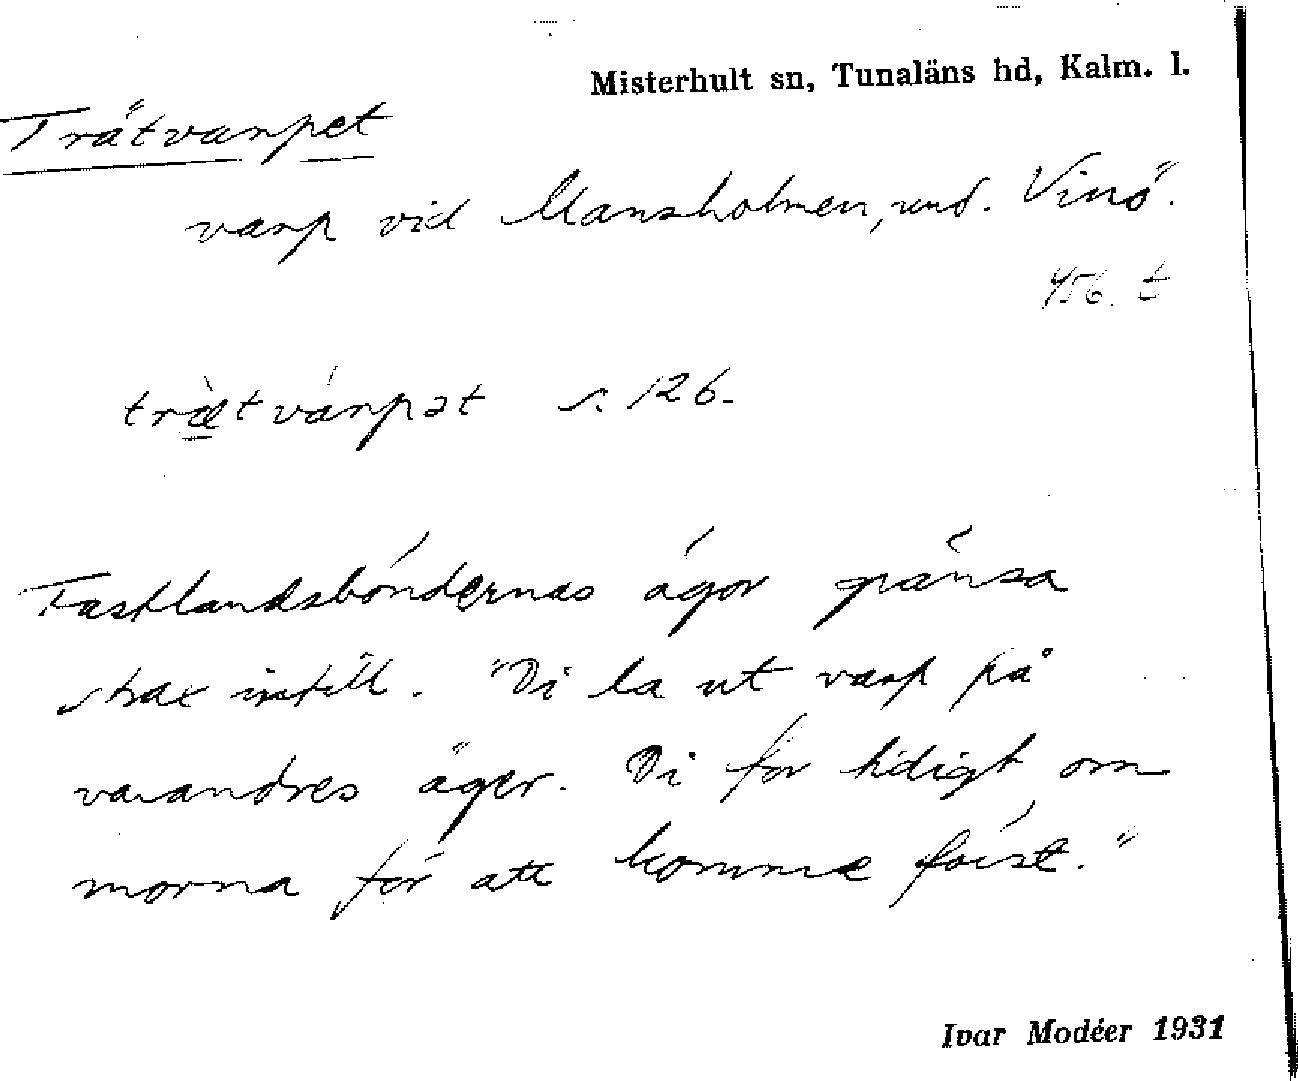 Misterhult sn, Tunaläns hd, Kalm. l.
Trätvarpet
varp vid Mansholmen, und. Vinö.
456. t
trætvárpət s. 126.
Fastlandsböndernas ägor gränsa
strax intill. "Di la ut varp på
varandres äger. Di för tidigt om
morna för att komme först."
Ivar Modéer 1931